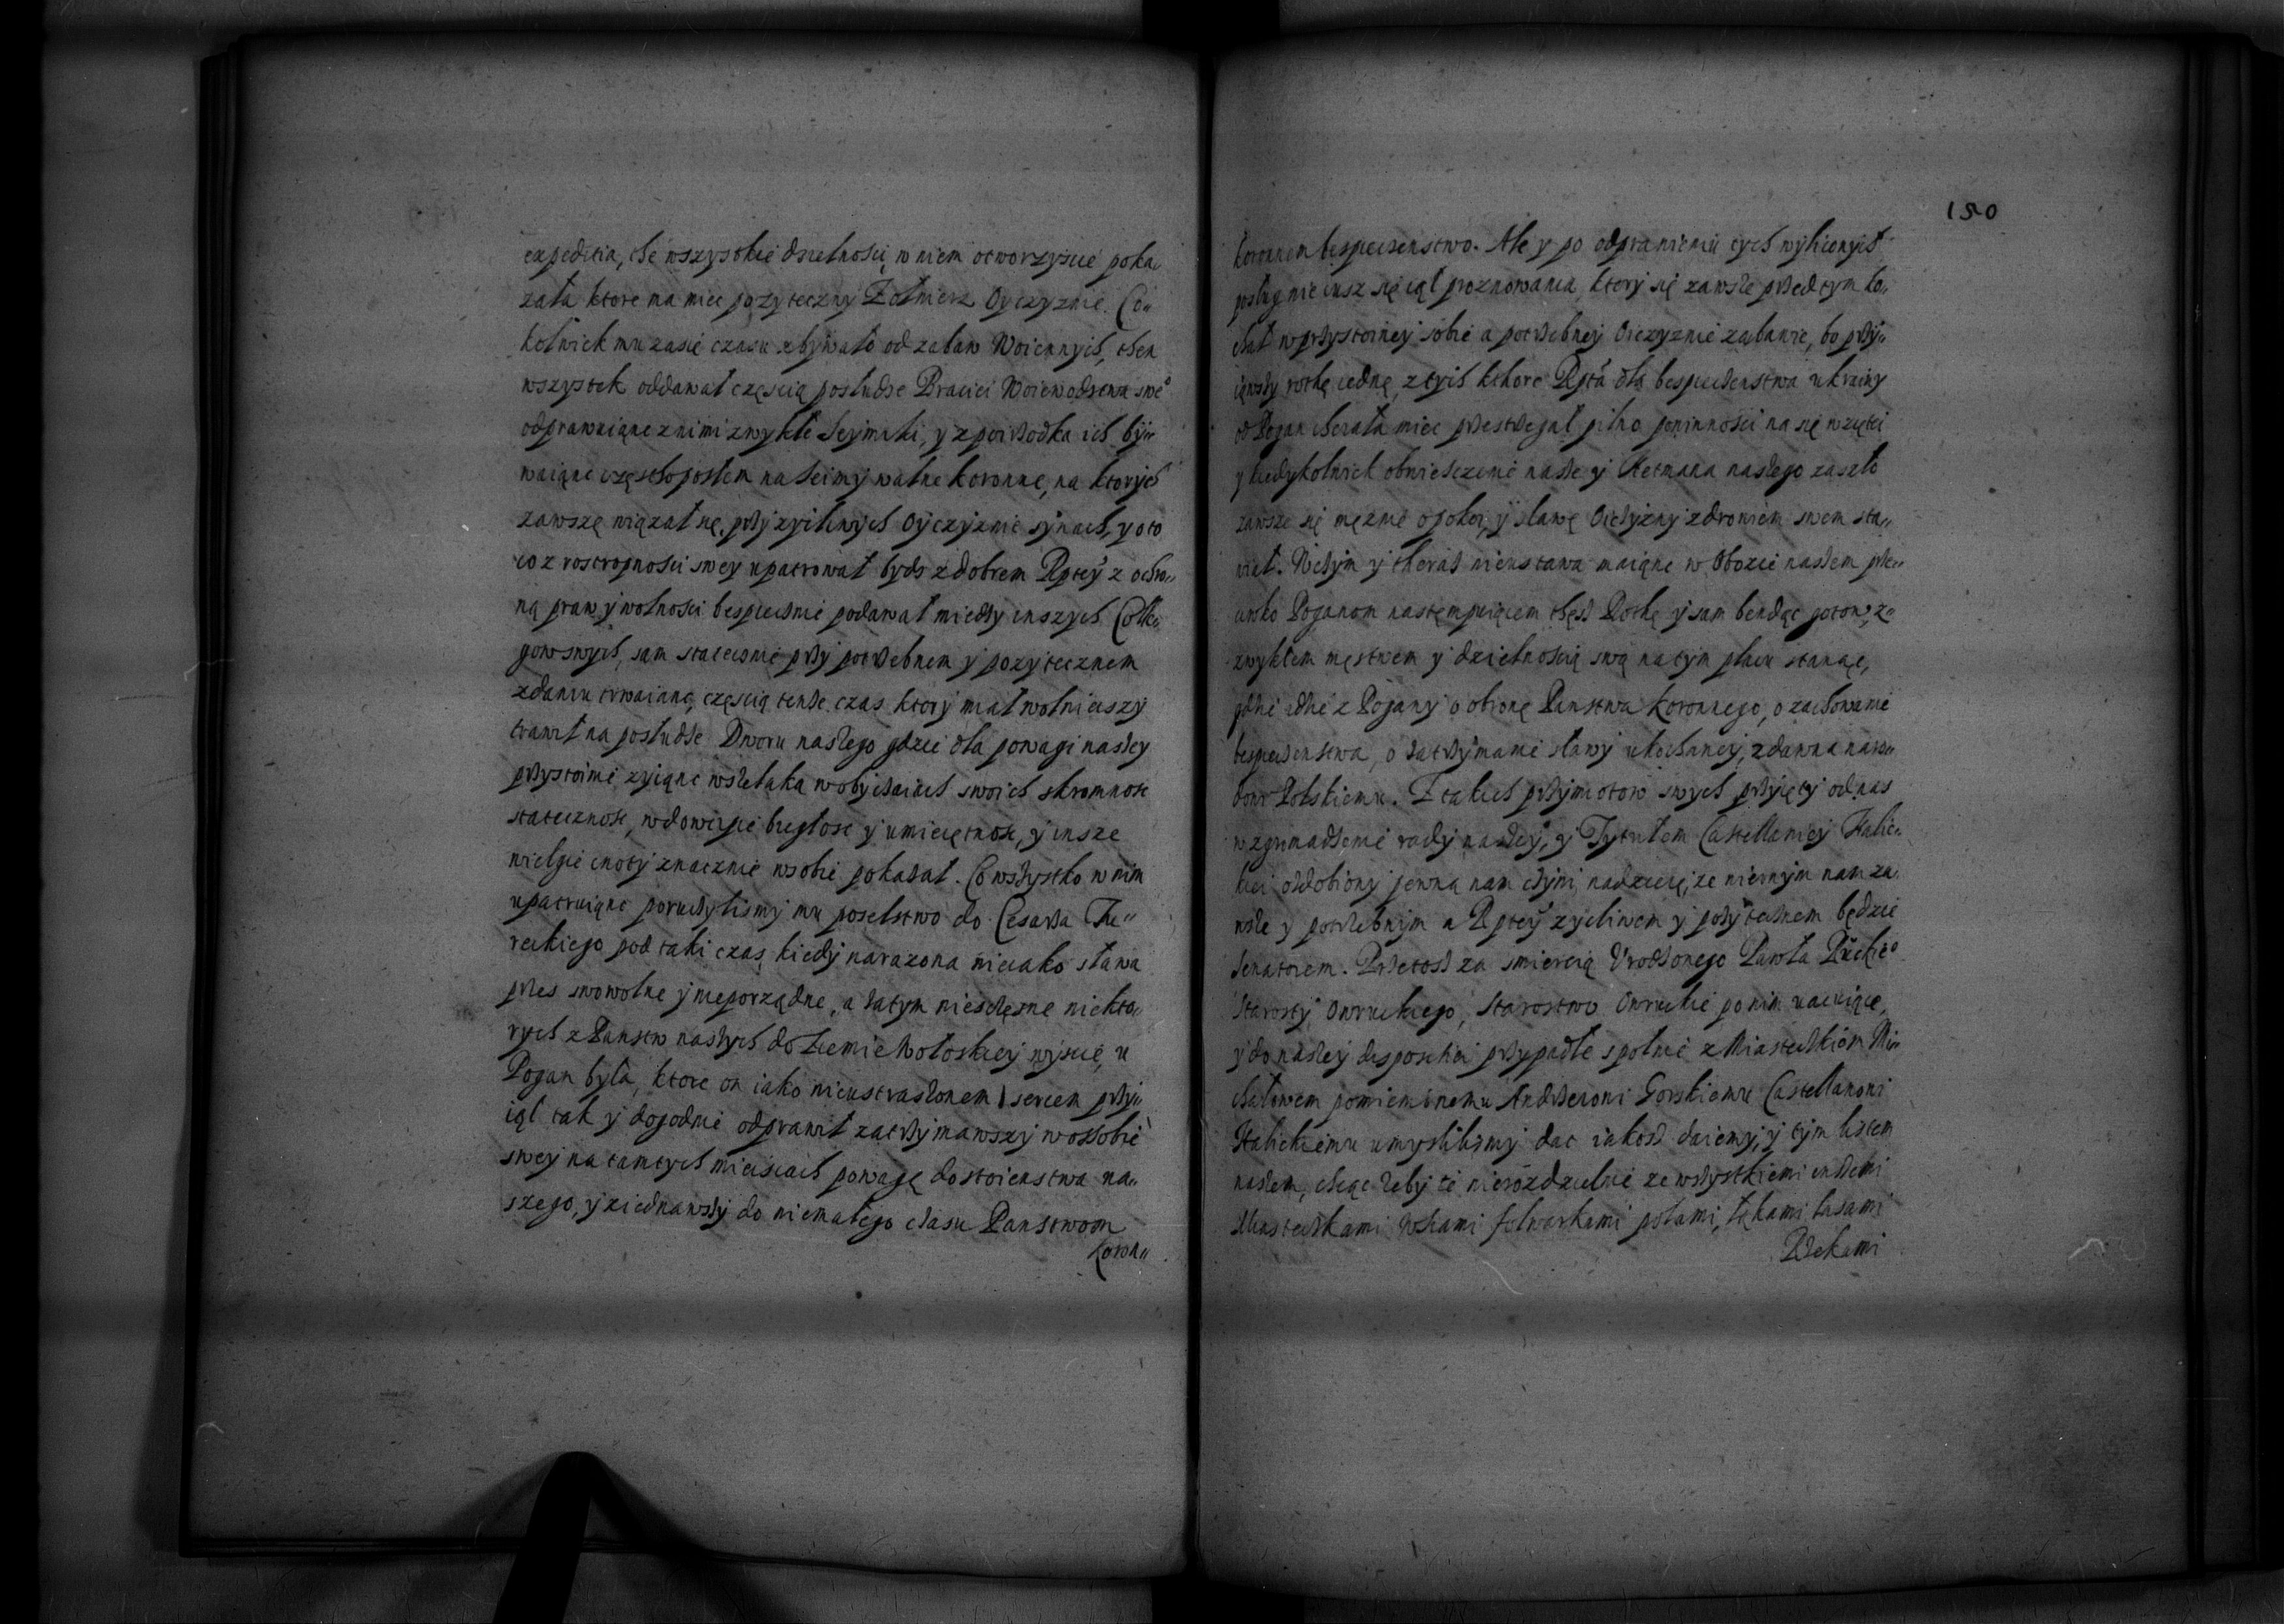 expeditia, że wszystkie dzielnosci w niem otworzyscie poka„
zała ktore ma miec pozyteczny Zołnierz Oyczyznie. Co„
kolwiek mu zasie czasu zbywało od zabaw Woiennych, then
wszystek oddawał częscią posłudze Braciei Woiewodztwa sweº
odprawuiąc z nimi zwykłe Seymiki, y z posrzodka ich by„
waiąc często posłem na Seimy walne koronne, na ktorych
zawszę wiązał się przy zyczliwych Oyczyznie synach, y oto
co z rostropnosci swey upatrował bydz z dobrem Rptey z ochro„
ną praw y wolnosci bespiecznie podawał miedzy inszych Colle„
gow swych, sam statecznie przy potrzebnem y pozytecznem
zdaniu trwaiąc, częscią tenze czas ktory miał wolnieiszy
trawił na posłudze Dworu naszego gdzie dla powagi naszey
przystoinie zyiąc wszelaką w obyczaiach swoich skromnosc
statecznosc, w dowcipie biegłosc y umieiętnosc, y insze
wielgie cnoty znacznie w sobie pokazał. Co wszystko w nim
upatruiąc poruczylismy mu poselstwo do Cesarza Tu„
reckiego pod taki czas, kiedy narazona nieiako sława
przes swowolne y nieporządne, a zatym nieszczęsne niekto„
rych z Panstw naszych do Ziemie Wołoskiey wyscie, u
Pogan była, ktore on iako nieustraszonem sercem przy„
iął tak y dogodnie odprawił zatrzymawszy w osobie
swey na tamtych mieiscach powagę dostoienstwa na„
szego, y ziednawszy do niemałego czasu Panstwom
koron„
150
koronnem bespieczenstwo. Ale y po odprawieniu tych wyliczonych
posług nie iusz się iął proznowania, ktory się zawsze przedtym ko„
chał w przystoiney sobie a potrzebney Oiczyznie zabawie, bo przy„
iąwszy rothę iednę z tych kthore Rpta dla bespieczenstwa ukrainy
od Pogan chciała miec przestrzegał pilno powinnosci na się wziętei
y kiedykolwiek obwieszczenie nasze y Hetmana naszego zaszło
zawsze się męznie o pokoi y sławę Oiczyzny zdrowiem swem sta„
wiał. W czym y theraz nieustawa maiąc w Obozie naszem prze„
ciwko Poganom nastempuiącem thęz Rothę y sam bendąc gotow z„
zwykłem męstwem y dzielnoscią swą na tym placu stanąc,
gdzie idzie z Pogany o obronę Panstwa koronnego, o zachowanie
bespieczenstwa, o zatrzymanie sławy ukochaney, zdawna naro„
dowi Polskiemu. Z takich przymiotow swych przyięty od nas
w zgromadzenie rady naszey, y Tytułem Castellaniey Halic„
kiei ozdobiony pewną nam czyni nadzieię, ze wiernym nam za„
wsze y potrzebnym a Rptey zyczliwem y pozytecznem będzie
Senatorem. Przetosz za smiercią Vrodzonego Pawła Ruckieº
Starosty Owruckiego, Starostwo Owruckie po nim vacuiące,
y do naszey dispositiei przypadłe społnie z Miasteczkiem Mi„
chałowem pomienionemu Andrzeiowi Gorskiemu Castellanowi
Halickiemu umyslilismy dac iakosz daiemy, y tym listem
naszem, chcąc zeby te nierozdzielnie ze wszystkiemi inszemi
Miasteczkami Wsiami folwarkami polami, łąkami lasami
Rzekami